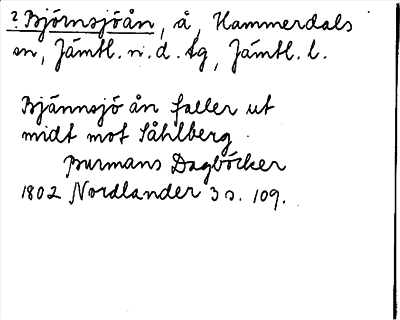 ? Björnsjöån, å, Hammerdals
sn, Jämtl. n. d. tg, Jämtl. l.
Bjännsjö ån faller ut
midt mot Såhlberg.
Burmans Dagböcker
1802 Nordlander 3 s. 109.